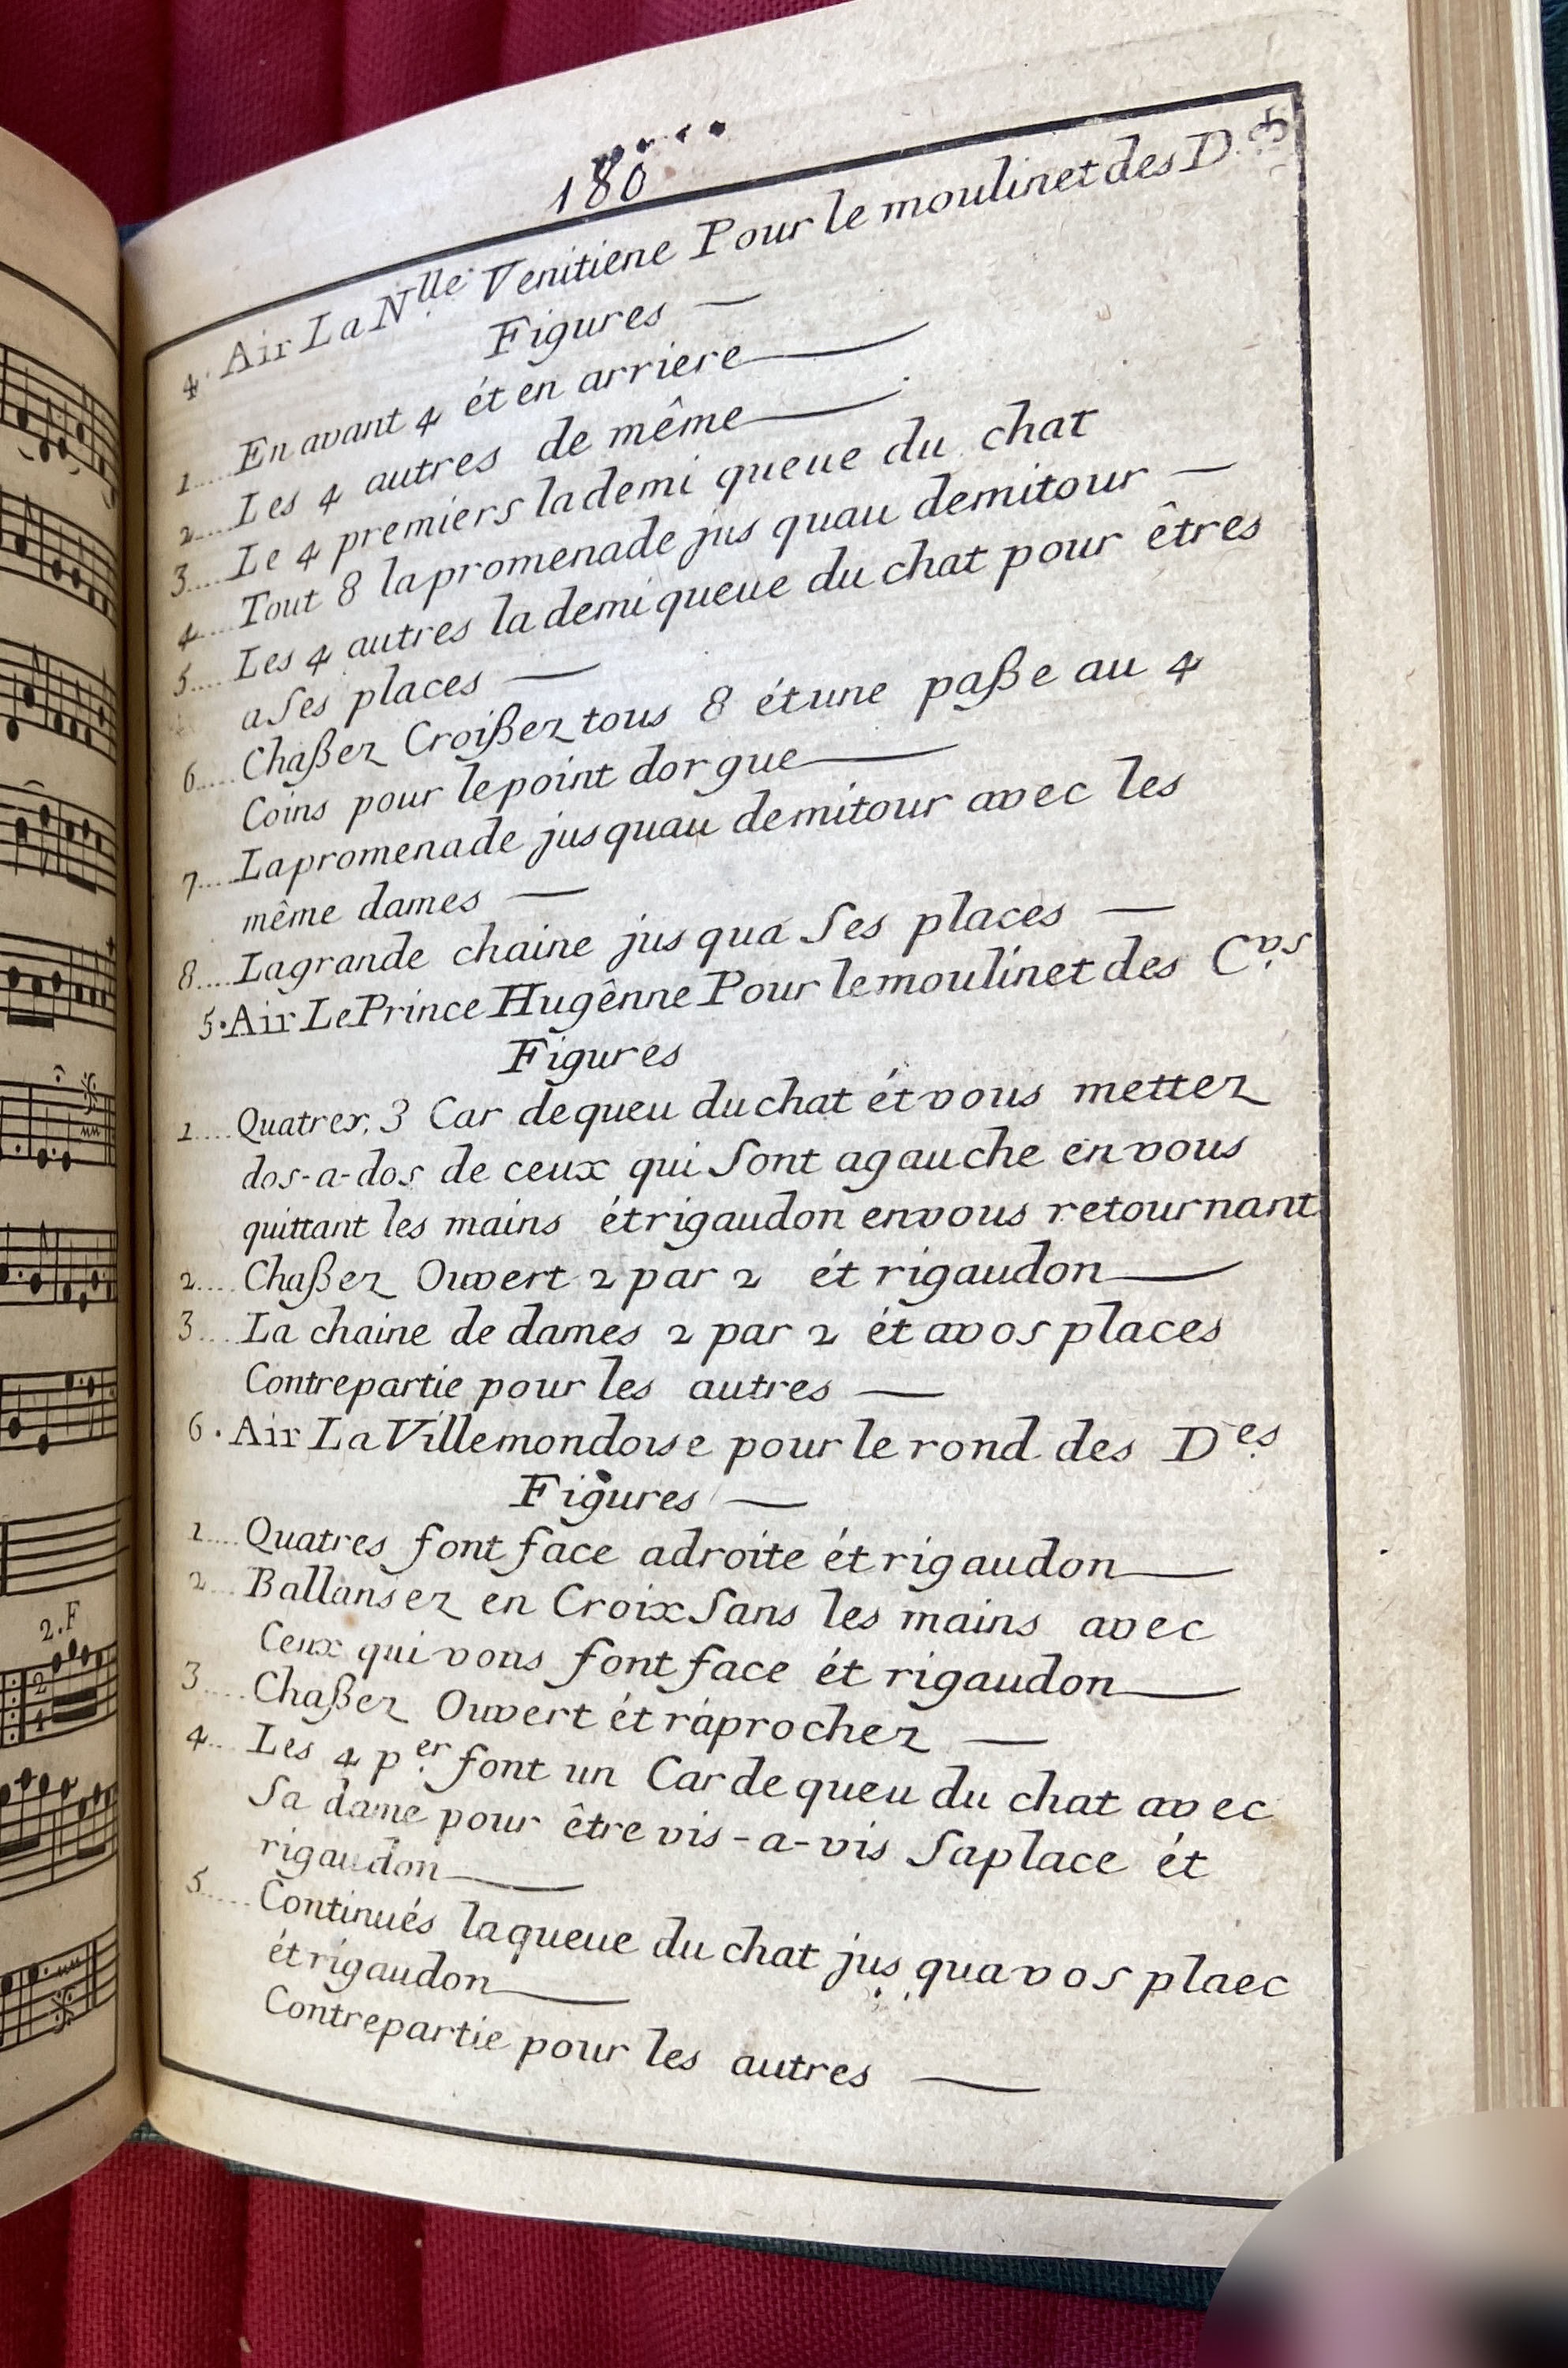 180
4. Air La Nlle Venitiene Pour le moulinet des D.
Figures —
1.... En avant 4 ét en arriere —
2.... Les 4 autres de même —
3.... Le 4 premiers la demi queue du chat
4.... Tout 8 la promenade jus quau demitour —
5.... Les 4 autres la demi queue du chat pour êtres
a ſes places —
6.... Chaßez Croißez tous 8 ét une paßse au 4
Coins pour le point dorgue —
7.... La promenade jusquau demitour avec les
même dames —
8.... La grande chaine jus qua ſes places —
5. Air Le Prince Hugênne Pour le moulinet des Cvs
Figures
1.... Quatrer. 3 Car de queu du chat ét vous mettez
dos-a-dos de ceux qui ſont a gauche en vous
quittant les mains ét rigaudon en vous retournant
2.... Chaßez Ouvert 2 par 2 ét rigaudon —
3.... La chaine de dames 2 par 2 ét a vos places
Contrepartie pour les autres —
6. Air La Villemondoise pour le rond des Des
Figures —
1.... Quatres font face a droite ét rigaudon —
2... Ballansez en Croix ſans les mains avec
Ceux qui vous font face ét rigaudon —
3.... Chaßez Ouvert ét râprochez —
4... Les 4 per font un Car de queu du chat avec
ſa dame pour être vis-a-vis ſa place ét
rigaudon —
5.... Continués la queue du chat jus qua vos plaec
ét rigaudon —
Contrepartie pour les autres —
2.F
2
4